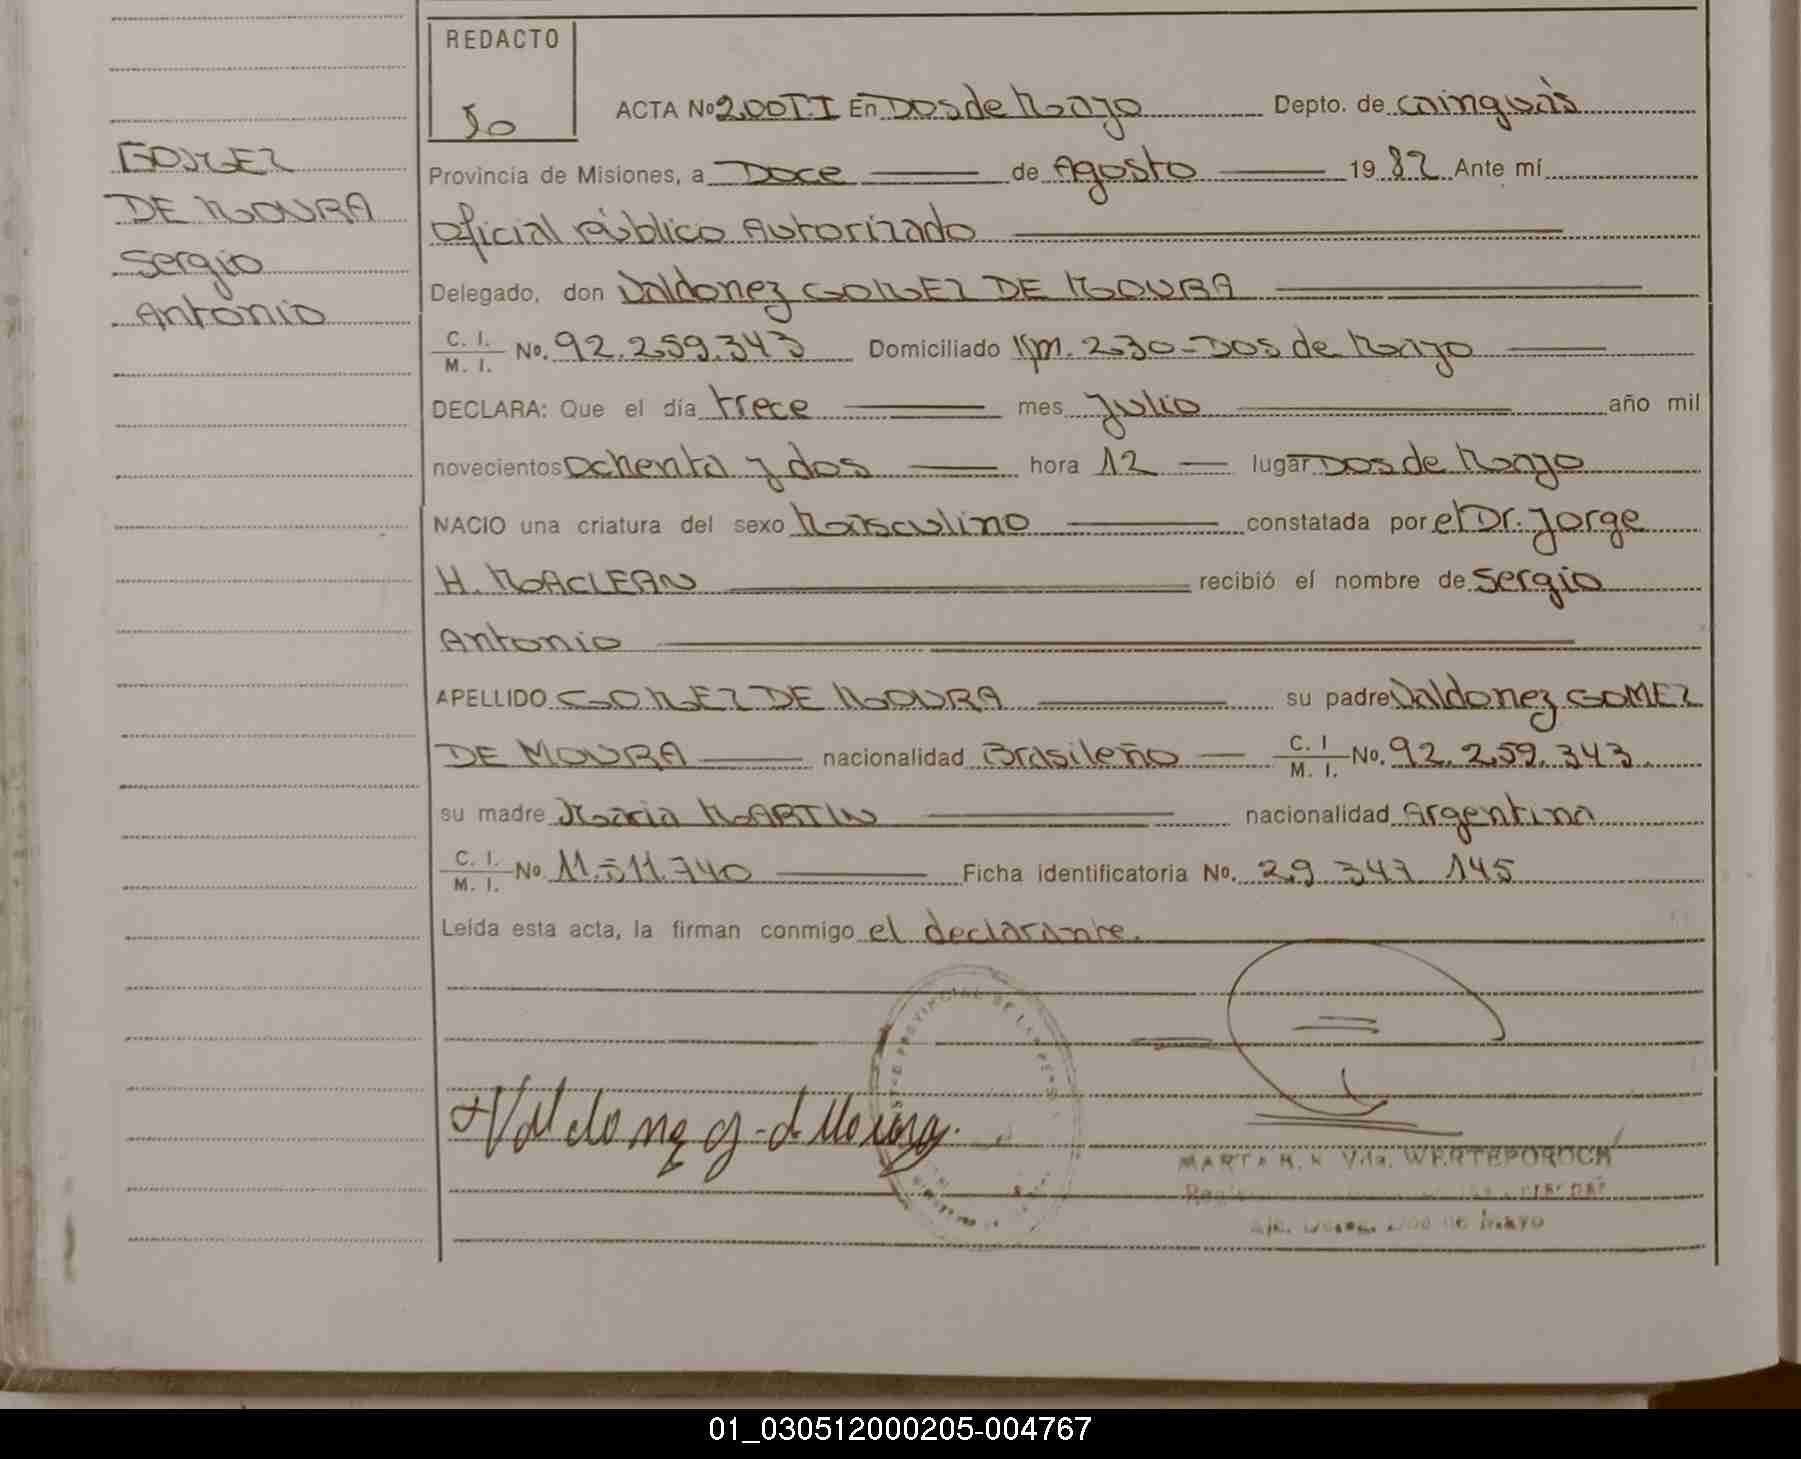 REDACTO
50
ACTA No 200 T.I En Dos de Mayo Depto. de Cainguás
GOMEZ
DE MOURA
Sergio
Antonio
Provincia de Misiones, a Doce de Agosto 19 82 Ante mí
Oficial Público Autorizado
Delegado, don Valdonez GOMEZ DE MOURA
C. I. / M. I. No. 92.259.343 Domiciliado Km. 230-Dos de Mayo
DECLARA: Que el día trece mes Julio año mil
novecientos ochenta y dos hora 12 lugar Dos de Mayo
NACIO una criatura del sexo Masculino constatada por el Dr. Jorge
H. MACLEAN recibió el nombre de Sergio
Antonio
APELLIDO GOMEZ DE MOURA su padre Valdonez GOMEZ
DE MOURA nacionalidad Brasileño C. I / M. I. No. 92.259.343.
su madre María MARTIN nacionalidad Argentina
C. I. / M. I. No 11.511.740 Ficha identificatoria No. 29 347 145
Leída esta acta, la firman conmigo el declarante.
PROVINCIAL DE LAS PERS
Valdonez g. d Moura.
MARTA H. K Vda. WERTEPOROCH
Dos de Mayo
01_030512000205-004767